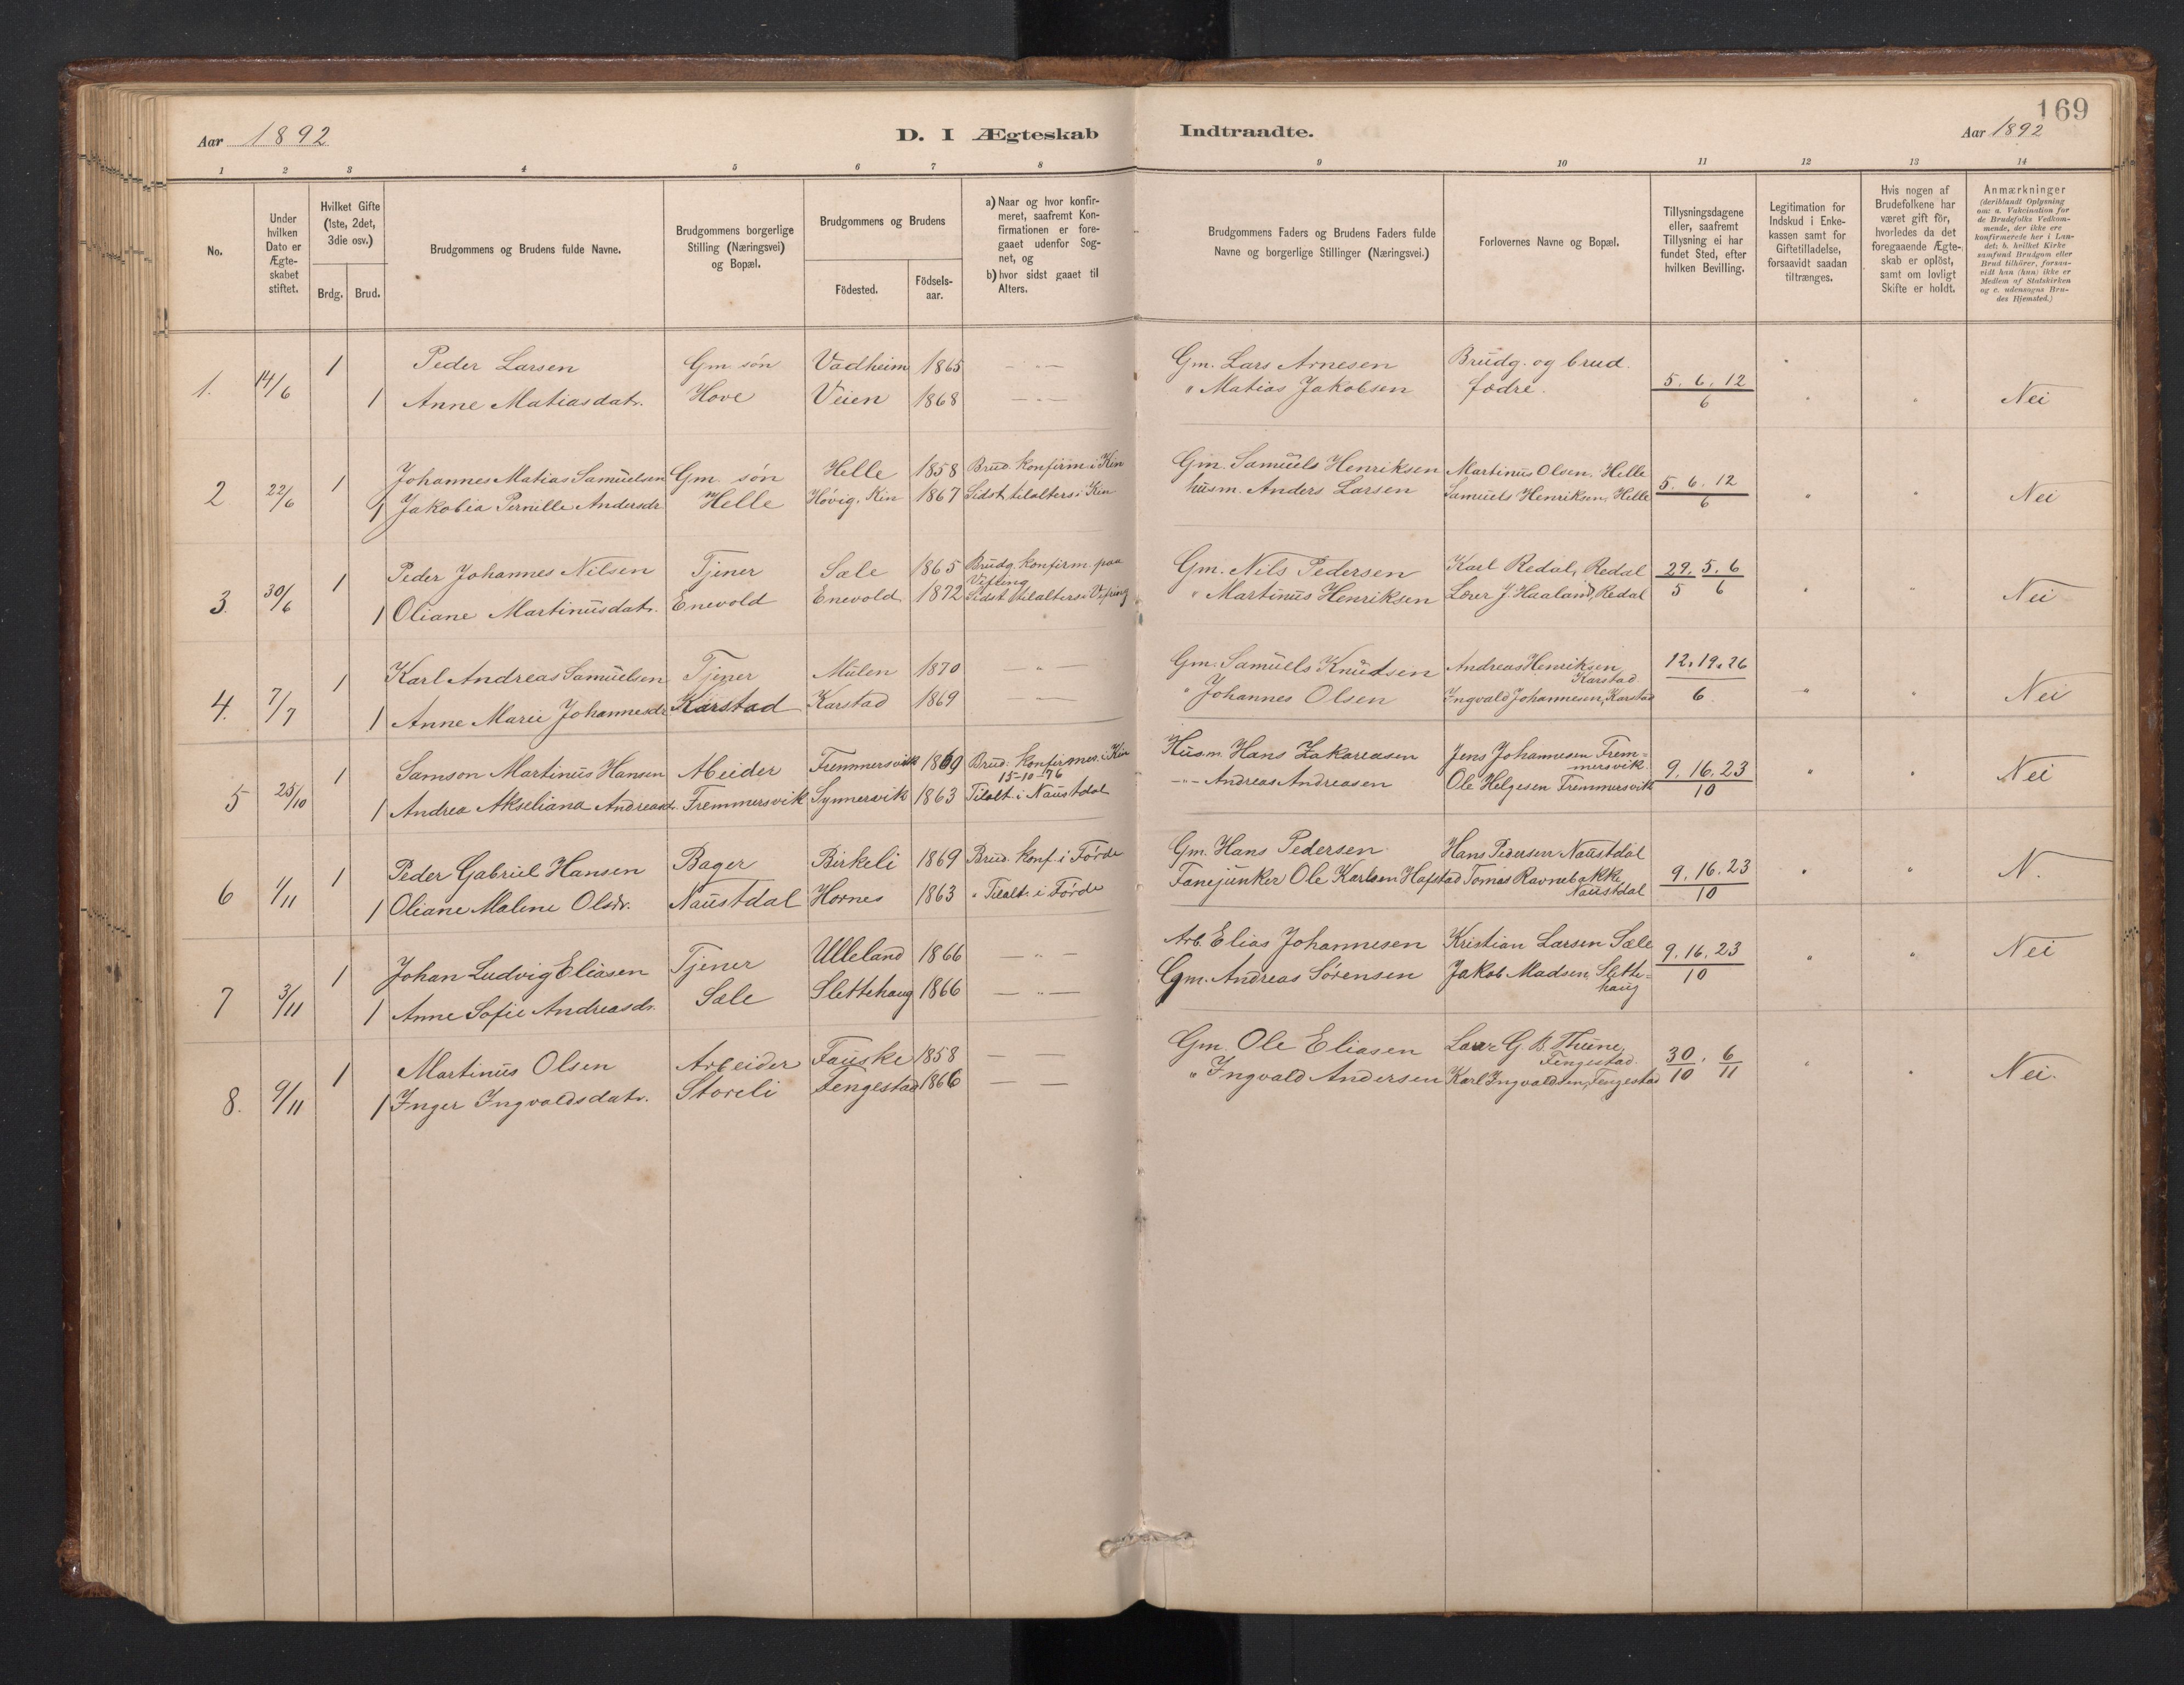 169
Aar 1892 D. I Ægteskab Indtraadte. Aar 1892
1 2 3 4 5 6 7 8 9 10 11 12 13 14
No.
Under
hvilken
Dato er
Ægte-
skabet
stiftet.
Hvilket Gifte
(1ste, 2det,
3die osv.)
Brdg. Brud.
Brudgommens og Brudens fulde Navne.
Brudgommens borgerlige
Stilling (Næringsvei)
og Bopæl.
Brudgommens og Brudens
Födested.
Födsels-
aar.
a) Naar og hvor konfir-
meret, saafremt Kon-
firmationen er fore-
gaaet udenfor Sog-
net, og
b) hvor sidst gaaet til
Alters.
Brudgommens Faders og Brudens Faders fulde
Navne og borgerlige Stillinger (Næringsvei.)
Forlovernes Navne og Bopæl.
Tillysningsdagene
eller, saafremt
Tillysning ei har
fundet Sted, efter
hvilken Bevilling.
Legitimation for
Indskud i Enke-
kassen samt for
Giftetilladelse,
forsaavidt saadan
tiltrænges.
Hvis nogen af
Brudefolkene har
været gift för,
hvorledes da det
foregaaende Ægte-
skab er oplöst,
samt om lovligt
Skifte er holdt.
Anmærkninger
(deriblandt Oplysning
om: a. Vakcination for
de Brudefolks Vedkom-
mende, der ikke ere
konfirmerede her i Lan-
det; b. hvilket Kirke
samfund Brudgom eller
Brud tilhörer, forsaa-
vidt han (hun) ikke er
Medlem af Statskirken
og c. udensogns Bru-
des Hjemsted.)
1. 14/6 1 Peder Larsen Gm. sön Vadheim 1865 — " — Gm. Lars Arnesen Brudg. og brud.
1 Anne Matiasdatr. Hove Veien 1868 — " — " Matias Jakobsen fædre. 5. 6. 12/6 " " Nei
2 22/6 1 Johannes Matias Samuelsen Gm. sön Helle 1858 Brud. konfirm. i Kin Gm. Samuels Henriksen Martinus Olsen, Helle
1 Jakobia Pernille Andersdr. Helle Hövig, Kin 1867 Sidst tilalters i Kin husm. Anders Larsen Samuels Henriksen, Helle 5. 6. 12/6 " " Nei
3. 30/6 1 Peder Johannes Nilsen Tjener Sæle 1865 Brudg. konfirm. paa Gm. Nils Pedersen Karl Redal, Redal 29. 5. 6
Vefring
1 Oliane Martinusdatr. Enevold Enevold 1872 Sidst tilalters i Vefring " Martinus Henriksen Lærer J. Haaland, Redal 5 6 " " Nei
4. 7/7 1 Karl Andreas Samuelsen Tjener Mulen 1870 — " — Gm. Samuels Knudsen Andreas Henriksen 12. 19. 26
Karstad
1 Anne Marie Johannesdr. Karstad Karstad 1869 — — " Johannes Olsen Ingvald Johannesen, Karstad 6 " " Nei
5 25/10 1 Samson Martinus Hansen Abeider Fremmersvik 1869 Brud: konfirmer. i Kin Husm. Hans Zakariasen Jens Johannesen Frem-
15-10-76 mersvik
1 Andrea Akseliana Andreasdr. Fremmersvik Synnersvik 1863 Tilalt. i Naustdal —"— Andreas Andreasen Ole Helgesen Fremmersvik 9. 16. 23/10 " " Nei
6 1/11 1 Peder Gabriel Hansen Bager Birkeli 1869 Brud. konf. i Förde Gm. Hans Pedersen Hans Pedersen Naustdal
1 Oliane Malene Olsdr. Naustdal Hornes 1863 " Tilalt. i Förde Fanejunker Ole Karlsen Hafstad Tomas Ravnebakke 9. 16. 23/10 " " N.
Naustdal
7 3/11 1 Johan Ludvig Eliasen Tjener Ulleland 1866 — " — Arb. Elias Johannesen Kristian Larsen Sæle 9. 16. 23/10 " " Nei
1 Anne Sofie Andreasdr. Sæle Slettehaug 1866 — " — Gm. Andreas Sörensen Jakob Madsen, Slette-
haug
8. 9/11 1 Martinus Olsen Arbeider Fauske 1858 — — Gm. Ole Eliasen Lærer G. B. Thune,
Fengestad
1 Inger Ingvaldsdatr. Storeli Fengestad 1866 — — " Ingvald Andersen Karl Ingvaldsen, Fengestad 30/10. 6/11 " " Nei.